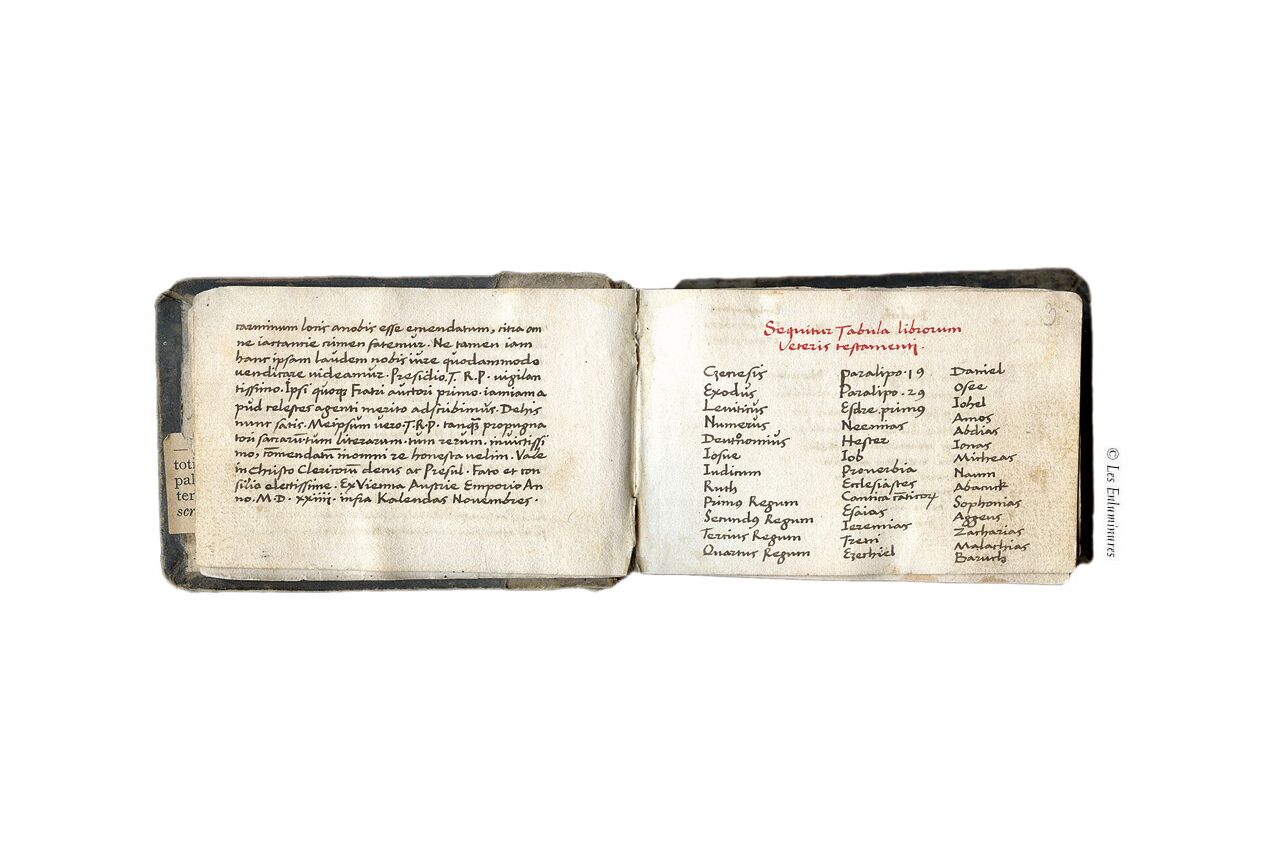 carminum locis anobis esse emendatum, citra om
ne iactantie crimen fatemur. Ne tamen iam
hanc ipsam laudem nobis iure quodammodo
vendicare videamur. Presidio. T. R. P. vigilan
tissimo. Ipsi quoqȝ Fratri auctori primo. iamiam a
pud celestes agenti merito adscribimus. Dehis
nunc satis. Meipsum vero. T. R. P. tanqȝ propugna
tori sacrarū tum literarum. tum rerum. invictissi
mo, cōmendatū inomni re honesta velim. Vale
in Christo Clericorū decus ac Presul. Fato et con
silio electissime. Ex Vienna Austrie Emporio An
no. M. D. xxiiii. infra Kalendas Novembres.
toti
pal
ter
scr
3
Sequitur Tabula librorum
Veteris testamenti.
Genesis
Exodus
Leviticus
Numerus
Deutronomius
Iosue
Iudicum
Ruth
Primꝰ Regum
Secundꝰ Regum
Tercius Regum
Quartus Regum
Paralipo. 1ꝰ
Paralipo. 2ꝰ
Esdre primꝰ
Neemias
Hester
Iob
Proverbia
Ecclesiastes
Cantica cāticoꝝ
Esaias
Ieremias
Treni
Ezechiel
Daniel
Osee
Iohel
Amos
Abdias
Ionas
Micheas
Naum
Abacuck
Sophonias
Aggeus
Zacharias
Malachias
Baruch
© Les Enluminures